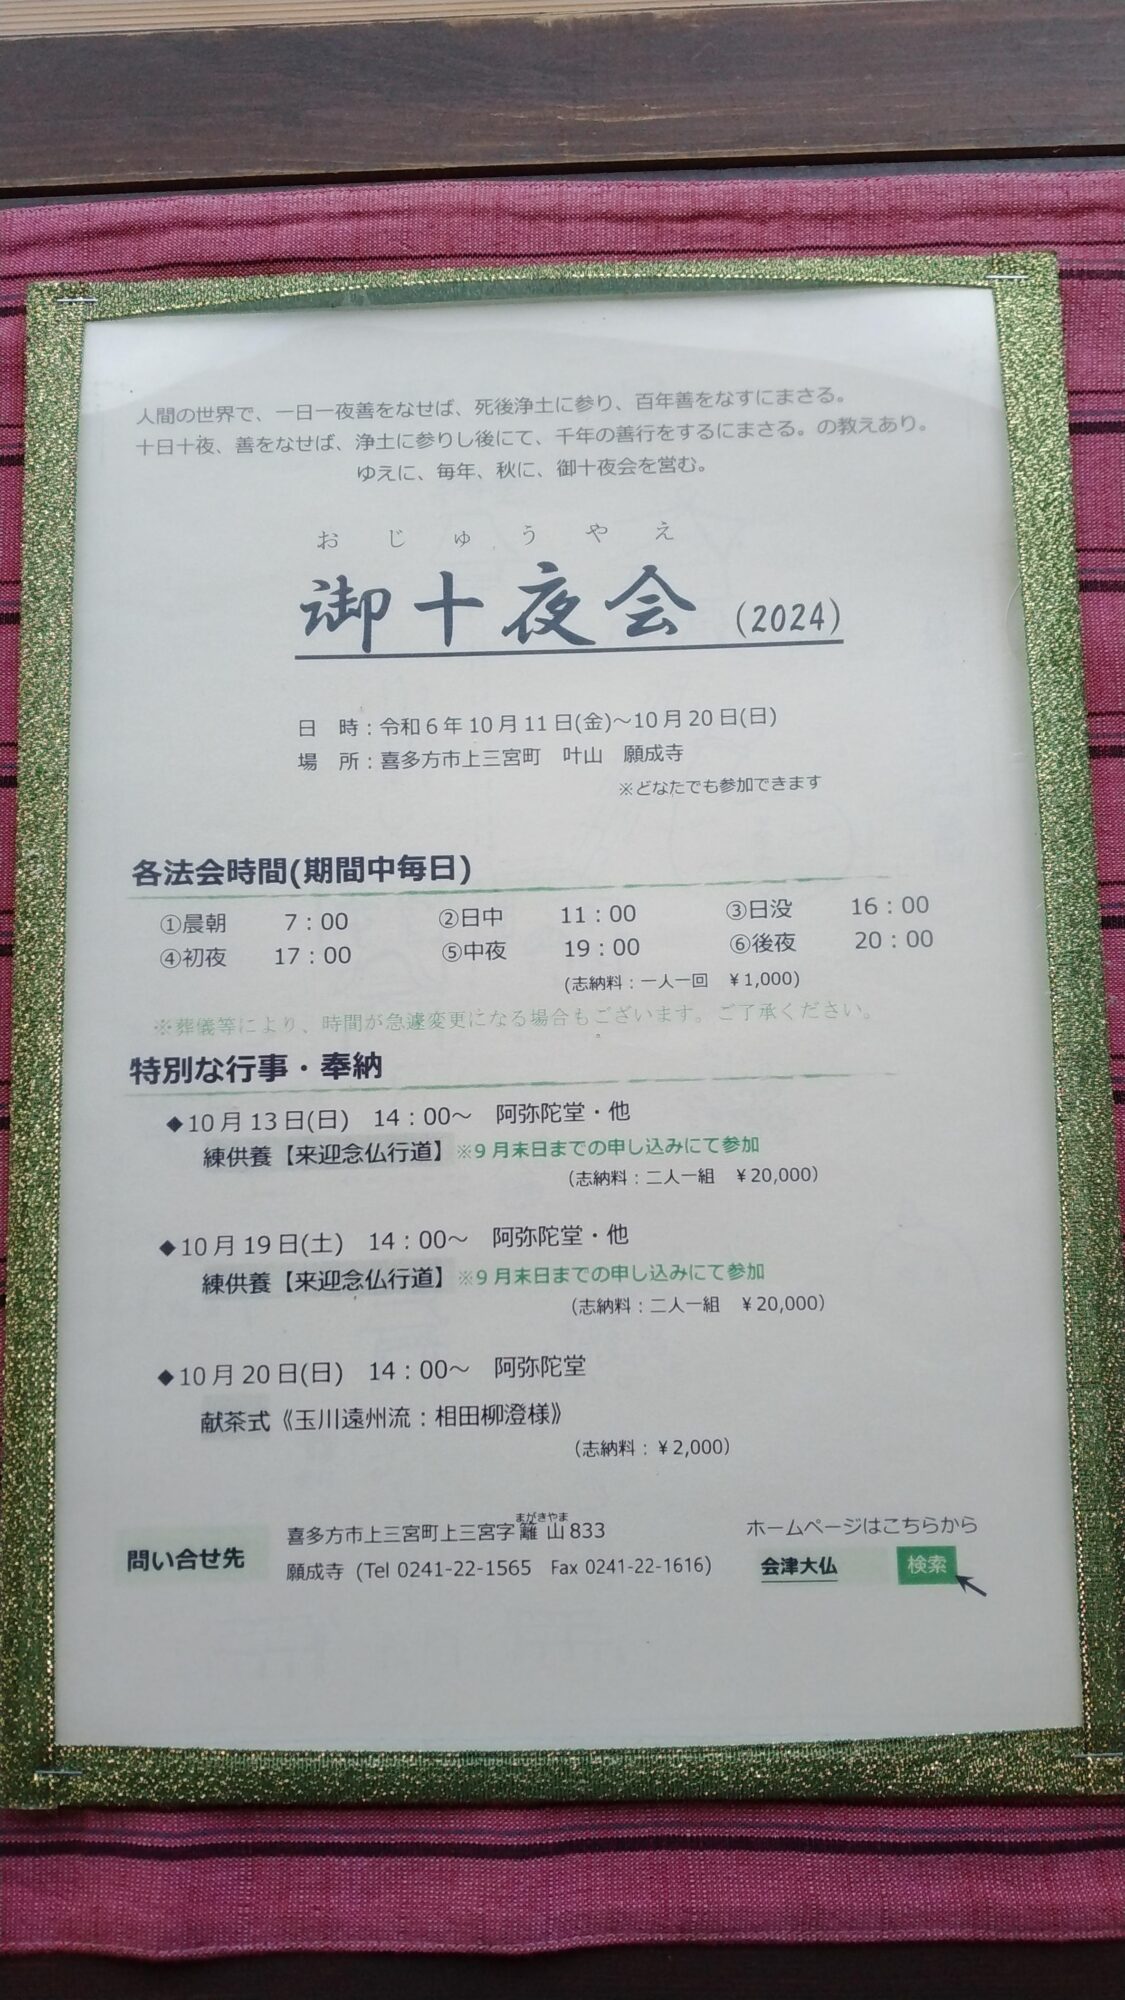 人間の世界で、一日一夜善をなせば、死後浄土に参り、百年善をなすにまさる。
十日十夜、善をなせば、浄土に参りし後にて、千年の善行をするにまさる。の教えあり。
ゆえに、毎年、秋に、御十夜会を営む。
おじゅうやえ
御十夜会（2024）
日　時：令和６年10月11日(金)～10月20日(日)
場　所：喜多方市上三宮町　叶山　願成寺
※どなたでも参加できます
各法会時間(期間中毎日)
①晨朝　7：00　②日中　11：00　③日没　16：00
④初夜　17：00　⑤中夜　19：00　⑥後夜　20：00
(志納料：一人一回　￥1,000)
※葬儀等により、時間が急遽変更になる場合もございます。ご了承ください。
特別な行事・奉納
◆10月13日(日)　14：00～　阿弥陀堂・他
練供養【来迎念仏行道】※９月末日までの申し込みにて参加
（志納料：二人一組　￥20,000）
◆10月19日(土)　14：00～　阿弥陀堂・他
練供養【来迎念仏行道】※９月末日までの申し込みにて参加
（志納料：二人一組　￥20,000）
◆10月20日(日)　14：00～　阿弥陀堂
献茶式《玉川遠州流：相田柳澄様》
（志納料：￥2,000）
まがきやま
問い合せ先
喜多方市上三宮町上三宮字籬山833
願成寺（Tel 0241-22-1565　Fax 0241-22-1616）
ホームページはこちらから
会津大仏　検索